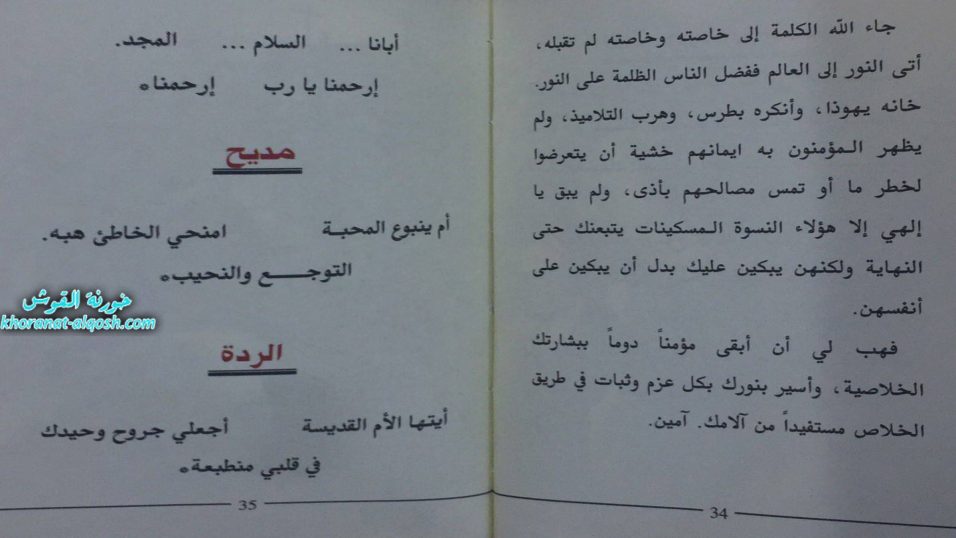 جاء الله الكلمة إلى خاصته وخاصته لم تقبله،
أتى النور إلى العالم ففضل الناس الظلمة على النور.
خانه يهوذا، وأنكره بطرس، وهرب التلاميذ، ولم
يظهر المؤمنون به ايمانهم خشية أن يتعرضوا
لخطر ما أو تمس مصالحهم بأذى، ولم يبق يا
إلهي إلا هؤلاء النسوة المسكينات يتبعنك حتى
النهاية ولكنهن يبكين عليك بدل أن يبكين على
أنفسهن.
فهب لي أن أبقى مؤمناً دوماً ببشارتك
الخلاصية، وأسير بنورك بكل عزم وثبات في طريق
الخلاص مستفيداً من آلامك. آمين.
34
أبانا ... السلام ... المجد.
إرحمنا يا رب إرحمنا*
مديح
أم ينبوع المحبة امنحي الخاطئ هبه.
التوجع والنحيب*
الردة
أيتها الأم القديسة أجعلي جروح وحيدك
في قلبي منطبعة*
35
خورنة القوش
khoranat-alqosh.com